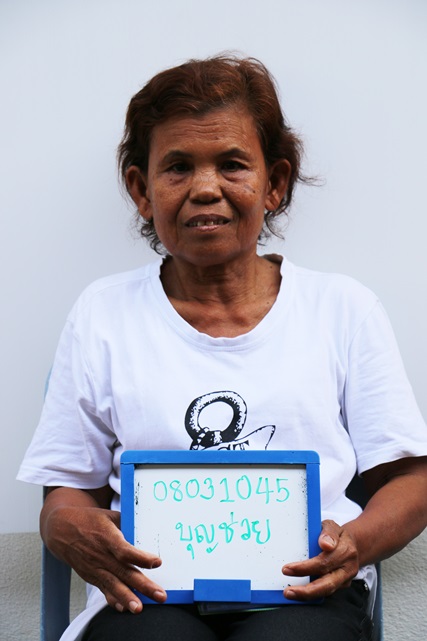 08031045
บุญช่วย